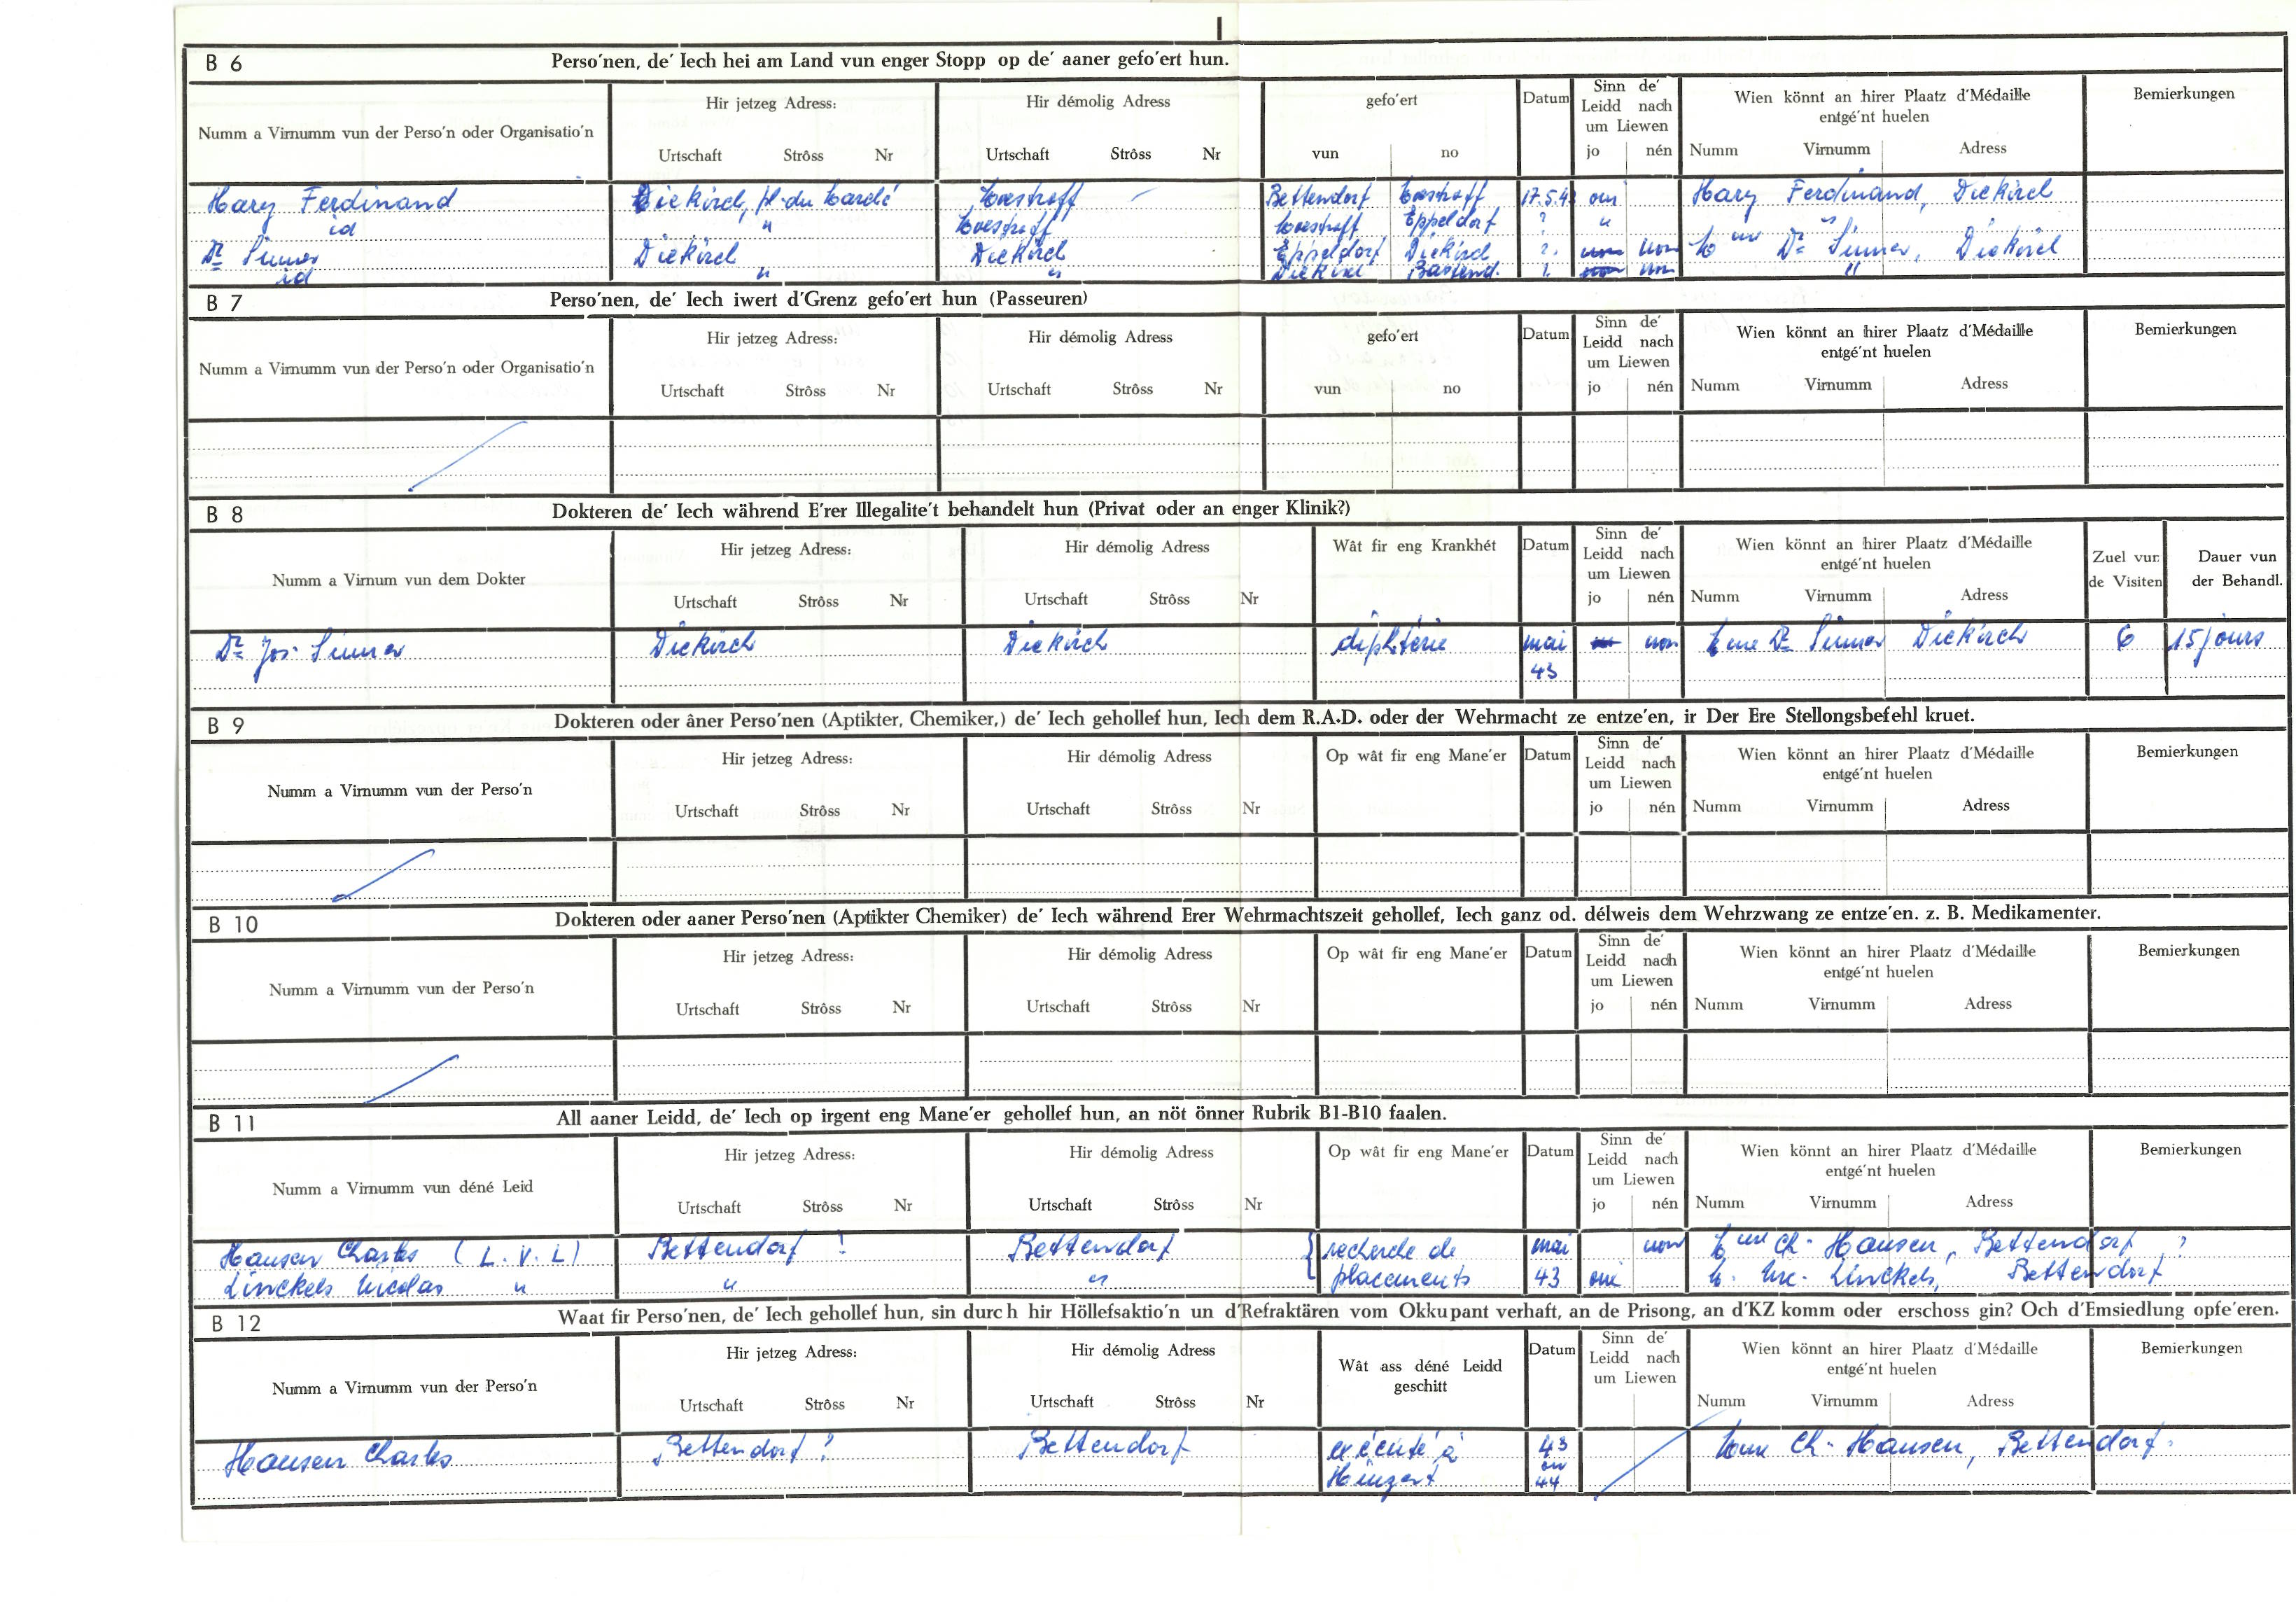 B 6 Perso'nen, de' Iech hei am Land vun enger Stopp op de' aaner gefo'ert hun.
Numm a Virnumm vun der Perso'n oder Organisatio'n Hir jetzeg Adress: Urtschaft Strôss Nr Hir démolig Adress Urtschaft Strôss Nr gefo'ert vun no Datum Sinn de' Leidd nach um Liewen jo nén Wien könnt an hirer Plaatz d'Médaille entgé'nt huelen Numm Virnumm Adress Bemierkungen
Hary Ferdinand Diekirch, pl. du Marché Moestroff Bettendorf Moestroff 17.5.43 oui Hary Ferdinand, Diekirch
id " Moestroff Moestroff Eppeldorf ? " "
Dr Sinner Diekirch Diekirch Eppeldorf Diekirch ? non Mme Dr Sinner, Diekirch
id " " Diekirch Bastend. ? non "
B 7 Perso'nen, de' Iech iwert d'Grenz gefo'ert hun (Passeuren)
Numm a Virnumm vun der Perso'n oder Organisatio'n Hir jetzeg Adress: Urtschaft Strôss Nr Hir démolig Adress Urtschaft Strôss Nr gefo'ert vun no Datum Sinn de' Leidd nach um Liewen jo nén Wien könnt an hirer Plaatz d'Médaille entgé'nt huelen Numm Virnumm Adress Bemierkungen
B 8 Dokteren de' Iech während E'rer Illegalite't behandelt hun (Privat oder an enger Klinik?)
Numm a Virnum vun dem Dokter Hir jetzeg Adress: Urtschaft Strôss Nr Hir démolig Adress Urtschaft Strôss Nr Wât fir eng Krankhét Datum Sinn de' Leidd nach um Liewen jo nén Wien könnt an hirer Plaatz d'Médaille entgé'nt huelen Numm Virnumm Adress Zuel vun de Visiten Dauer vun der Behandl.
Dr Jos. Sinner Diekirch Diekirch diphtérie mai 43 non Mme Dr Sinner Diekirch 6 15 jours
B 9 Dokteren oder âner Perso'nen (Aptikter, Chemiker,) de' Iech gehollef hun, Iech dem R.A.D. oder der Wehrmacht ze entze'en, ir Der Ere Stellongsbefehl kruet.
Numm a Virnumm vun der Perso'n Hir jetzeg Adress: Urtschaft Strôss Nr Hir démolig Adress Urtschaft Strôss Nr Op wât fir eng Mane'er Datum Sinn de' Leidd nach um Liewen jo nén Wien könnt an hirer Plaatz d'Médaille entgé'nt huelen Numm Virnumm Adress Bemierkungen
B 10 Dokteren oder aaner Perso'nen (Aptikter Chemiker) de' Iech während Erer Wehrmachtszeit gehollef, Iech ganz od. délweis dem Wehrzwang ze entze'en. z. B. Medikamenter.
Numm a Virnumm vun der Perso'n Hir jetzeg Adress: Urtschaft Strôss Nr Hir démolig Adress Urtschaft Strôss Nr Op wât fir eng Mane'er Datum Sinn de' Leidd nach um Liewen jo nén Wien könnt an hirer Plaatz d'Médaille entgé'nt huelen Numm Virnumm Adress Bemierkungen
B 11 All aaner Leidd, de' Iech op irgent eng Mane'er gehollef hun, an nöt önner Rubrik B1-B10 faalen.
Numm a Virnumm vun déné Leid Hir jetzeg Adress: Urtschaft Strôss Nr Hir démolig Adress Urtschaft Strôss Nr Op wât fir eng Mane'er Datum Sinn de' Leidd nach um Liewen jo nén Wien könnt an hirer Plaatz d'Médaille entgé'nt huelen Numm Virnumm Adress Bemierkungen
Hansen Charles (L.V.L) Bettendorf ! Bettendorf recherche de mai non Mme Ch. Hansen, Bettendorf ?
Linckels Nicolas " " " placements 43 oui M. Nic. Linckels, Bettendorf
B 12 Waat fir Perso'nen, de' Iech gehollef hun, sin durch hir Höllefsaktio'n un d'Refraktären vom Okkupant verhaft, an de Prisong, an d'KZ komm oder erschoss gin? Och d'Emsiedlung opfe'eren.
Numm a Virnumm vun der Perso'n Hir jetzeg Adress: Urtschaft Strôss Nr Hir démolig Adress Urtschaft Strôss Nr Wât ass déné Leidd geschitt Datum Sinn de' Leidd nach um Liewen Wien könnt an hirer Plaatz d'Médaille entgé'nt huelen Numm Virnumm Adress Bemierkungen
Hansen Charles Bettendorf ? Bettendorf exécuté à Hinzert 43 ou 44 Mme Ch. Hansen, Bettendorf.